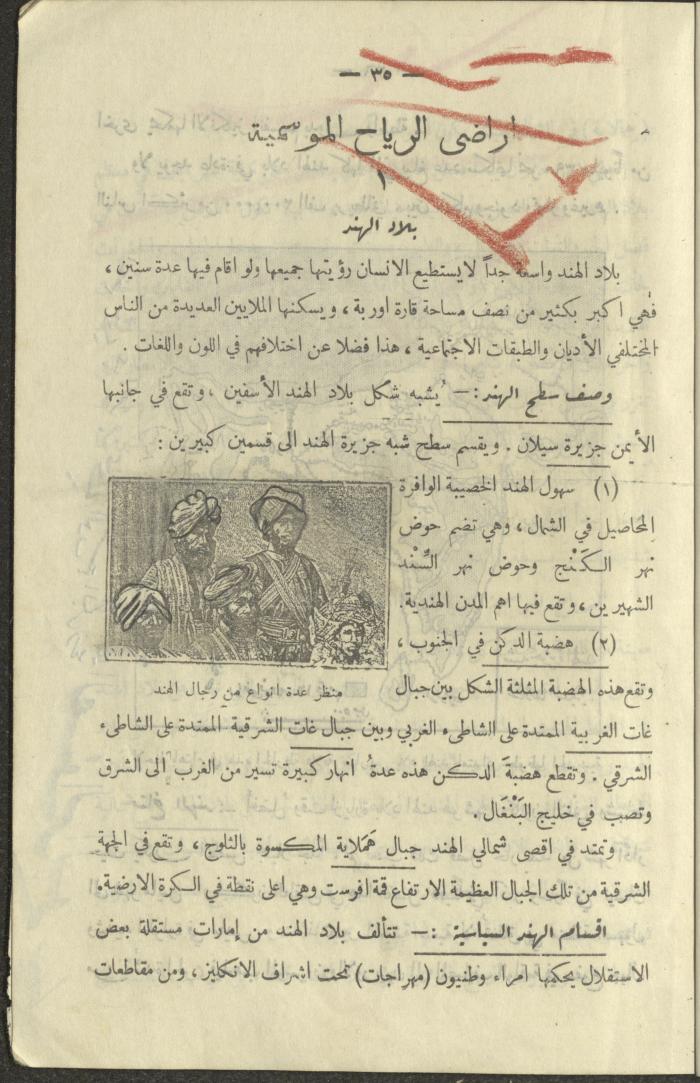 — ٣٥ —
اراضى الرياح الموسمية
١
بلاد الهند
بلاد الهند واسعة جداً لا يستطيع الانسان رؤيتها جميعها ولو اقام فيها عدة سنين ،
فهي اكبر بكثير من نصف مساحة قارة اوربة ، ويسكنها الملايين العديدة من الناس
المختلفي الأديان والطبقات الاجتماعية ، هذا فضلا عن اختلافهم في اللون واللغات .
وصف سطح الهند :— يُشبه شكل بلاد الهند الأسفين ، وتقع في جانبها
الأيمن جزيرة سيلان . ويقسم سطح شبه جزيرة الهند الى قسمين كبيرين :
(١) سهول الهند الخصيبة الوافرة
المحاصيل في الشمال ، وهي تضم حوض
نهر الكَنْج وحوض نهر السِّند
الشهيرين ، وتقع فيها اهم المدن الهندية.
(٢) هضبة الدكن في الجنوب ،
وتقع هذه الهضبة المثلثة الشكل بين جبال
منظر عدة انواع من رجال الهند
غات الغربية الممتدة على الشاطىء الغربي وبين جبال غات الشرقية الممتدة على الشاطىء
الشرقي . وتقطع هضبة الدكن هذه عدة انهار كبيرة تسير من الغرب الى الشرق
وتصب في خليج البَنْغَال .
وتمتد في اقصى شمالي الهند جبال هَمَلاية المكسوة بالثلوج ، وتقع في الجهة
الشرقية من تلك الجبال العظيمة الارتفاع قمة افرست وهي اعلى نقطة في الكرة الارضية.
اقسام الهند السياسية :— تتألف بلاد الهند من إمارات مستقلة بعض
الاستقلال يحكمها امراء وطنيون (مهراجات) تحت اشراف الانكليز ، ومن مقاطعات